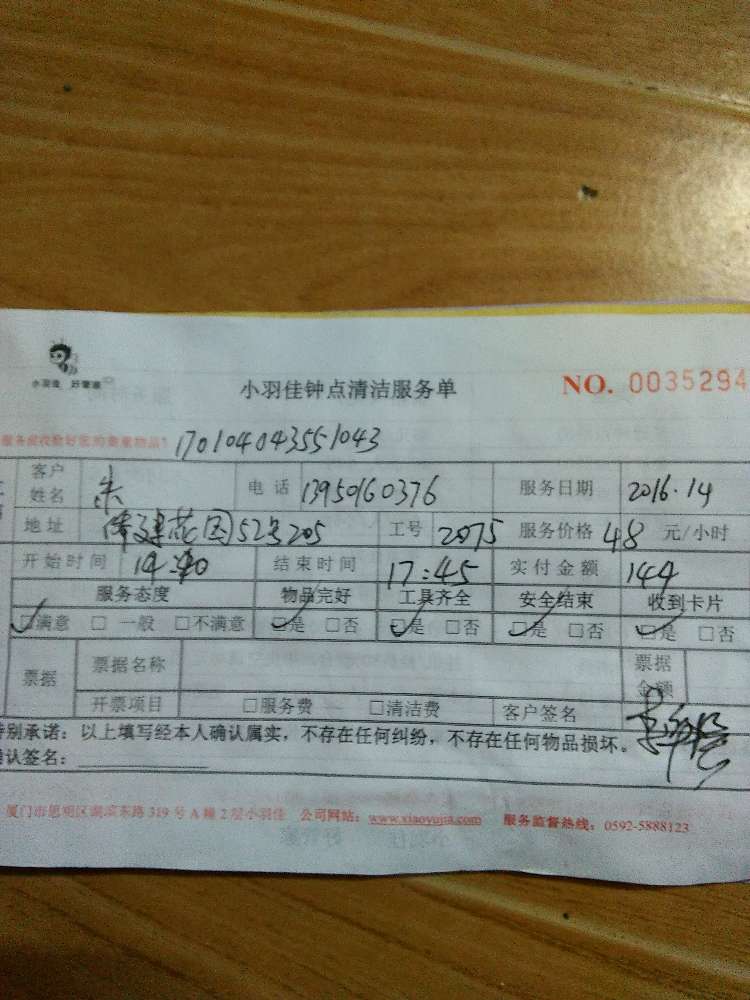 小羽佳 好管家
小羽佳钟点清洁服务单
NO. 0035294
170104043551043
客户姓名 朱 电话 13950160376 服务日期 2016.14
地址 建花园52号205 工号 2075 服务价格 48 元/小时
开始时间 结束时间 17:45 实付金额 144
服务态度 物品完好 工具齐全 安全结束 收到卡片
☑满意 □一般 □不满意 ☑是 □否 ☑是 □否 ☑是 □否 ☑是 □否
票据 票据名称 票据金额
开票项目 □服务费 □清洁费 客户签名
特别承诺：以上填写经本人确认属实，不存在任何纠纷，不存在任何物品损坏。
确认签名：
厦门市思明区湖滨东路 319 号 A 幢 2 层小羽佳 公司网站：www.xiaoyujia.com 服务监督热线：0592-5888123